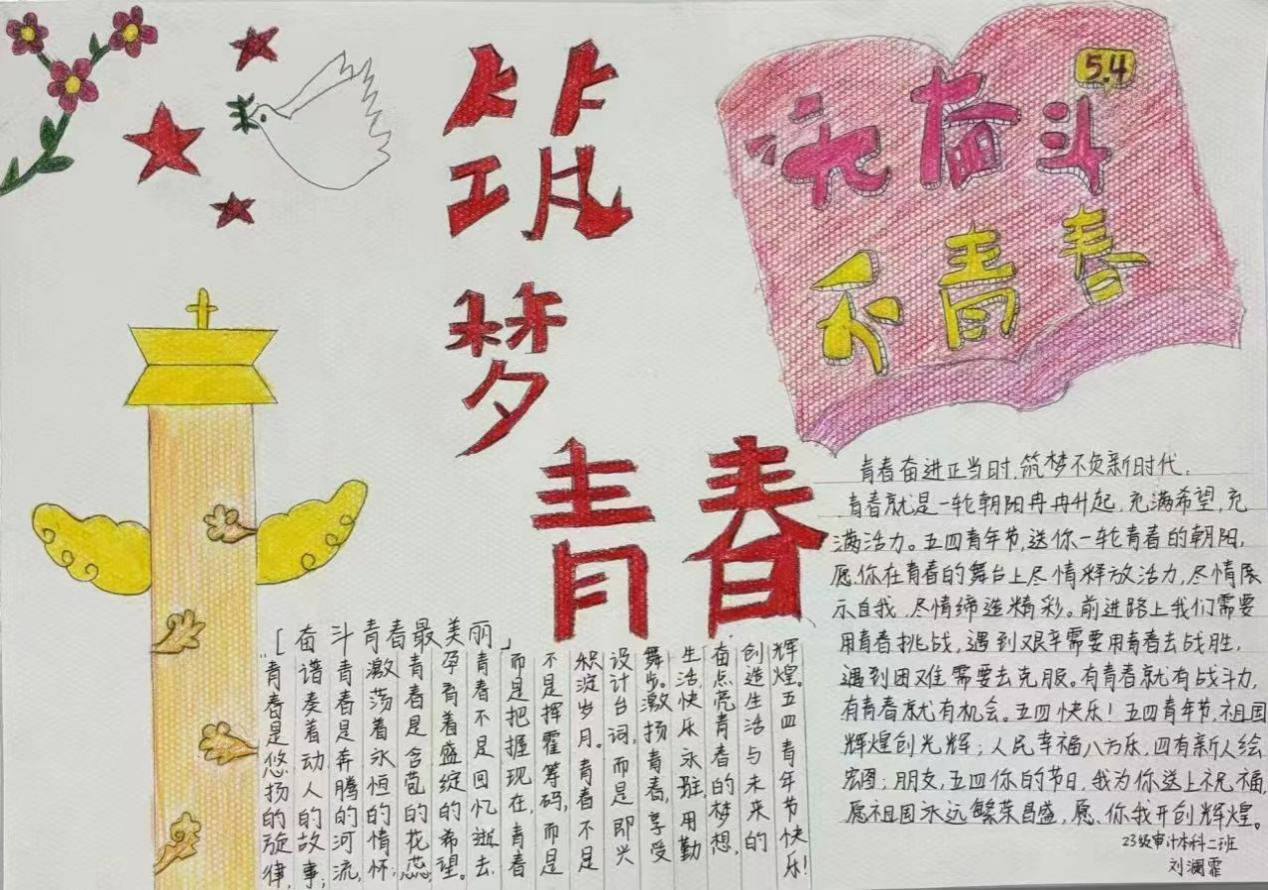 筑
梦
青春
5.4
无奋斗
不青春
「奋斗青春最美丽」
青春是悠扬的旋律,
谱奏着动人的故事;
青春是奔腾的河流,
激荡着永恒的情怀;
青春是含苞的花蕊,
孕育着盛绽的希望。
青春不是回忆逝去,
而是把握现在,青春
不是挥霍筹码,而是
积淀岁月。青春不是
设计台词,而是即兴
舞步。激扬青春,享受
生活,快乐永驻,用勤
奋点亮青春的梦想,
创造生活与未来的
辉煌。五四青年节快乐!
青春奋进正当时,筑梦不负新时代。
青春就是一轮朝阳冉冉升起,充满希望,充
满活力。五四青年节,送你一轮青春的朝阳,
愿你在青春的舞台上尽情释放活力,尽情展
示自我,尽情缔造精彩。前进路上我们需要
用青春挑战,遇到艰辛需要用青春去战胜,
遇到困难需要去克服。有青春就有战斗力,
有青春就有机会。五四快乐!五四青年节,祖国
辉煌创光辉;人民幸福八方乐,四有新人绘
宏图;朋友,五四你的节日,我为你送上祝福,
愿祖国永远繁荣昌盛,愿你我开创辉煌。
23级审计本科二班
刘澜霏